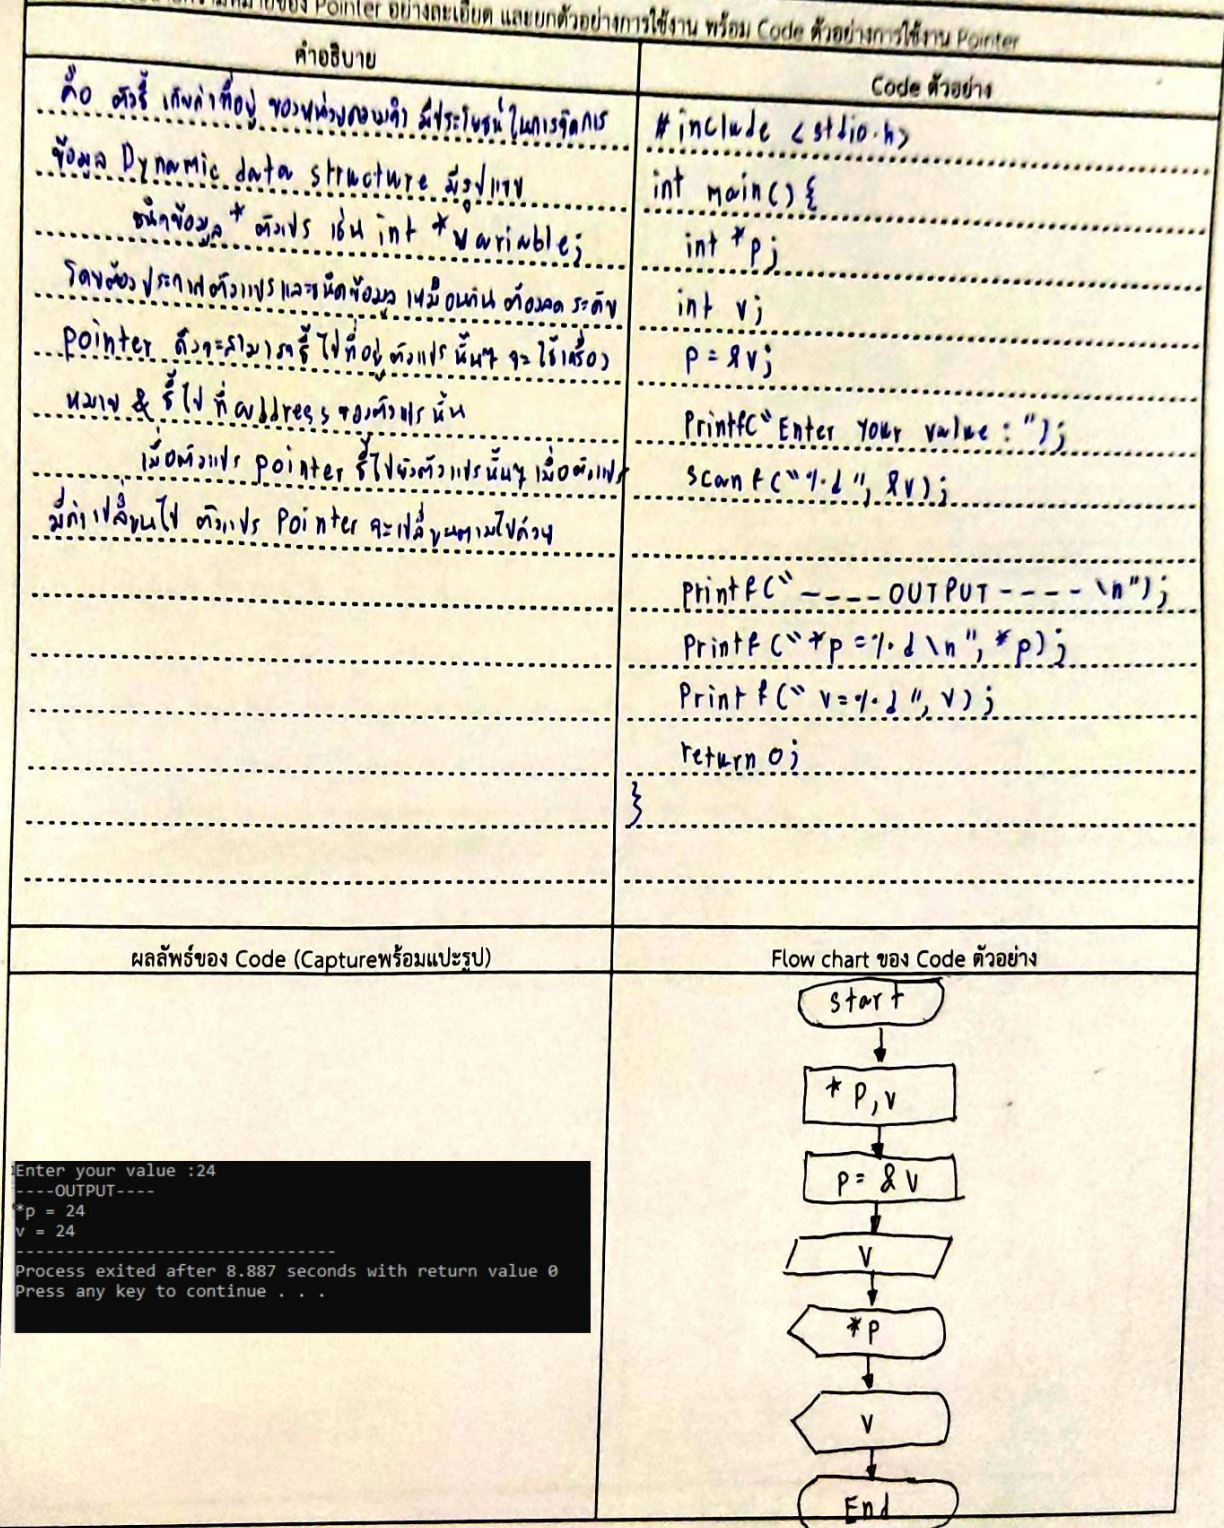 ความหมายของ Pointer อย่างละเอียด และยกตัวอย่างการใช้งาน พร้อม Code ตัวอย่างการใช้งาน Pointer
คำอธิบาย
คือ ตัวชี้ เก็บค่าที่อยู่ ของหน่วยความจำ มีประโยชน์ในการจัดการ
ข้อมูล Dynamic data structure มีรูปแบบ
ชนิดข้อมูล * ตัวแปร เช่น int *variable;
โดยต้องประกาศตัวแปรและชนิดข้อมูล เหมือนกัน ต้องลด ระดับ
pointer ถึงจะสามารถชี้ ไปที่อยู่ ตัวแปร นั้นๆ จะ ใช้เครื่อง
หมาย & ชี้ไป ที่ address ของตัวแปร นั้น
เมื่อตัวแปร pointer ชี้ไปยังตัวแปรนั้นๆ เมื่อตัวแปร
มีค่าเปลี่ยนไป ตัวแปร Pointer จะเปลี่ยนตามไปด้วย
Code ตัวอย่าง
#include <stdio.h>
int main() {
int *p;
int v;
p = &v;
Printf("Enter Your value : ");
scanf("%d", &v);
printf("----OUTPUT----\n");
Printf("*p =%d\n", *p);
Printf("v=%d", v);
return 0;
}
ผลลัพธ์ของ Code (Captureพร้อมแปะรูป)
Enter your value :24
----OUTPUT----
*p = 24
v = 24
--------------------------------
Process exited after 8.887 seconds with return value 0
Press any key to continue . . .
Flow chart ของ Code ตัวอย่าง
start
*P,v
p= &v
v
*p
v
End